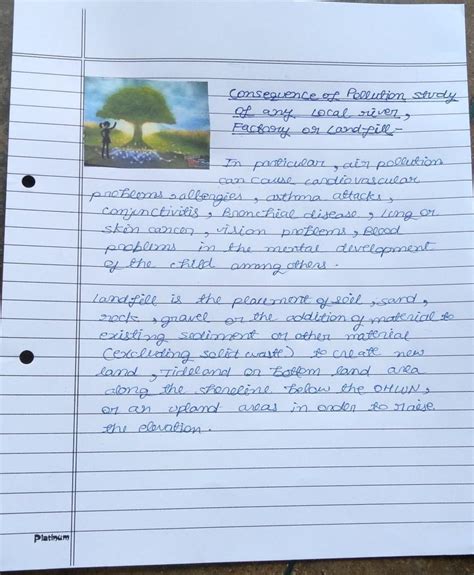 Consequence of Pollution study
of any local river,
Factory or Landfill:-
In particular, air pollution
can cause cardiovascular
problems, allergies, asthma attacks,
conjunctivitis, Bronchial disease, lung or
skin cancer, vision problems, Blood
problems in the mental development
of the child among others.
Landfill is the placement of soil, sand,
rock, gravel or the addition of material to
existing sediment or other material
(excluding solid waste) to create new
land, Tideland or Bottom land area
along the shoreline below the OHWN,
or an upland areas in order to raise
the elevation.
Platinum